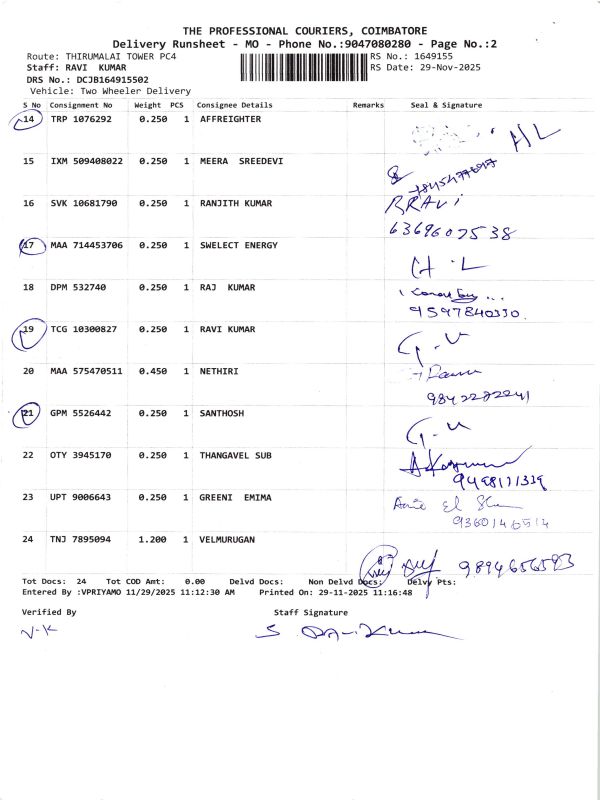 THE PROFESSIONAL COURIERS, COIMBATORE
Delivery Runsheet - MO - Phone No.:9047080280 - Page No.:2
Route: THIRUMALAI TOWER PC4 RS No.: 1649155
Staff: RAVI KUMAR RS Date: 29-Nov-2025
DRS No.: DCJB164915502
Vehicle: Two Wheeler Delivery
S No Consignment No Weight PCS Consignee Details Remarks Seal & Signature
14 TRP 1076292 0.250 1 AFFREIGHTER
15 IXM 509408022 0.250 1 MEERA SREEDEVI
16 SVK 10681790 0.250 1 RANJITH KUMAR RRAVi
6369607538
17 MAA 714453706 0.250 1 SWELECT ENERGY
18 DPM 532740 0.250 1 RAJ KUMAR
9597840330.
19 TCG 10300827 0.250 1 RAVI KUMAR G.V
20 MAA 575470511 0.450 1 NETHIRI
9842272241
21 GPM 5526442 0.250 1 SANTHOSH G.V
22 OTY 3945170 0.250 1 THANGAVEL SUB
23 UPT 9006643 0.250 1 GREENI EMIMA
9360146514
24 TNJ 7895094 1.200 1 VELMURUGAN
9894656593
Tot Docs: 24 Tot COD Amt: 0.00 Delvd Docs: Non Delvd Docs: Delvy Pts:
Entered By :VPRIYAMO 11/29/2025 11:12:30 AM Printed On: 29-11-2025 11:16:48
Verified By Staff Signature
V-K S Ravi Kumar